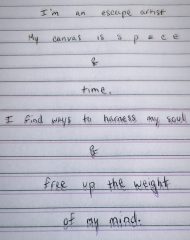 I'm an escape artist
My canvas is s p a c e
&
time.
I find ways to harness my soul
&
free up the weight
of my mind.